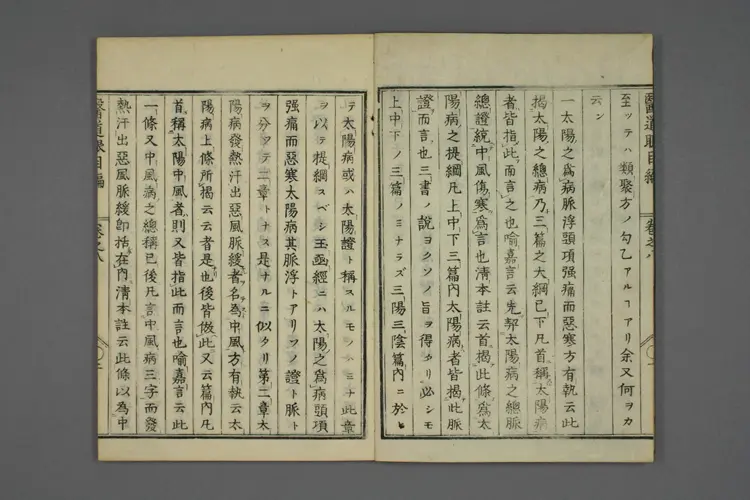 至ッテハ類聚方ノ勾乙アルヿアリ余又何ヲカ
云ン
一太陽之爲病脈浮頭項强痛而惡寒方有執云此
揭太陽之總病乃三篇之大綱已下凡首稱太陽病
者皆指此而言之也喻嘉言云先挈太陽病之總脈
總證統中風傷寒爲言也淸本註云首揭此條爲太
陽病之提綱凡上中下三篇內太陽病者皆揭此脈
證而言也三書ノ說ヨクソノ旨ヲ得タリ必シモ
上中下ノ三篇ノミナラズ三陽三陰篇內ニ於
醫道眼目編 卷之八
テ太陽病或ハ太陽證ト稱スルモノハミナ此章
ヲ以テ提綱スベシ玉函經ニハ太陽之爲病頭項
强痛而惡寒太陽病其脈浮トアリソノ證ト脈ト
ヲ分ツテ二章トナス是ナルニ似タリ第二章太
陽病發熱汗出惡風脈緩者名爲中風方有執云太
陽病上條所揭云云者是也後皆倣此又云篇內凡
首稱太陽中風者則又皆指此而言也喻嘉言云此
一條又中風病之總稱已後凡言中風病三字而發
熱汗出惡風脈緩卽括在內淸本註云此條以爲中